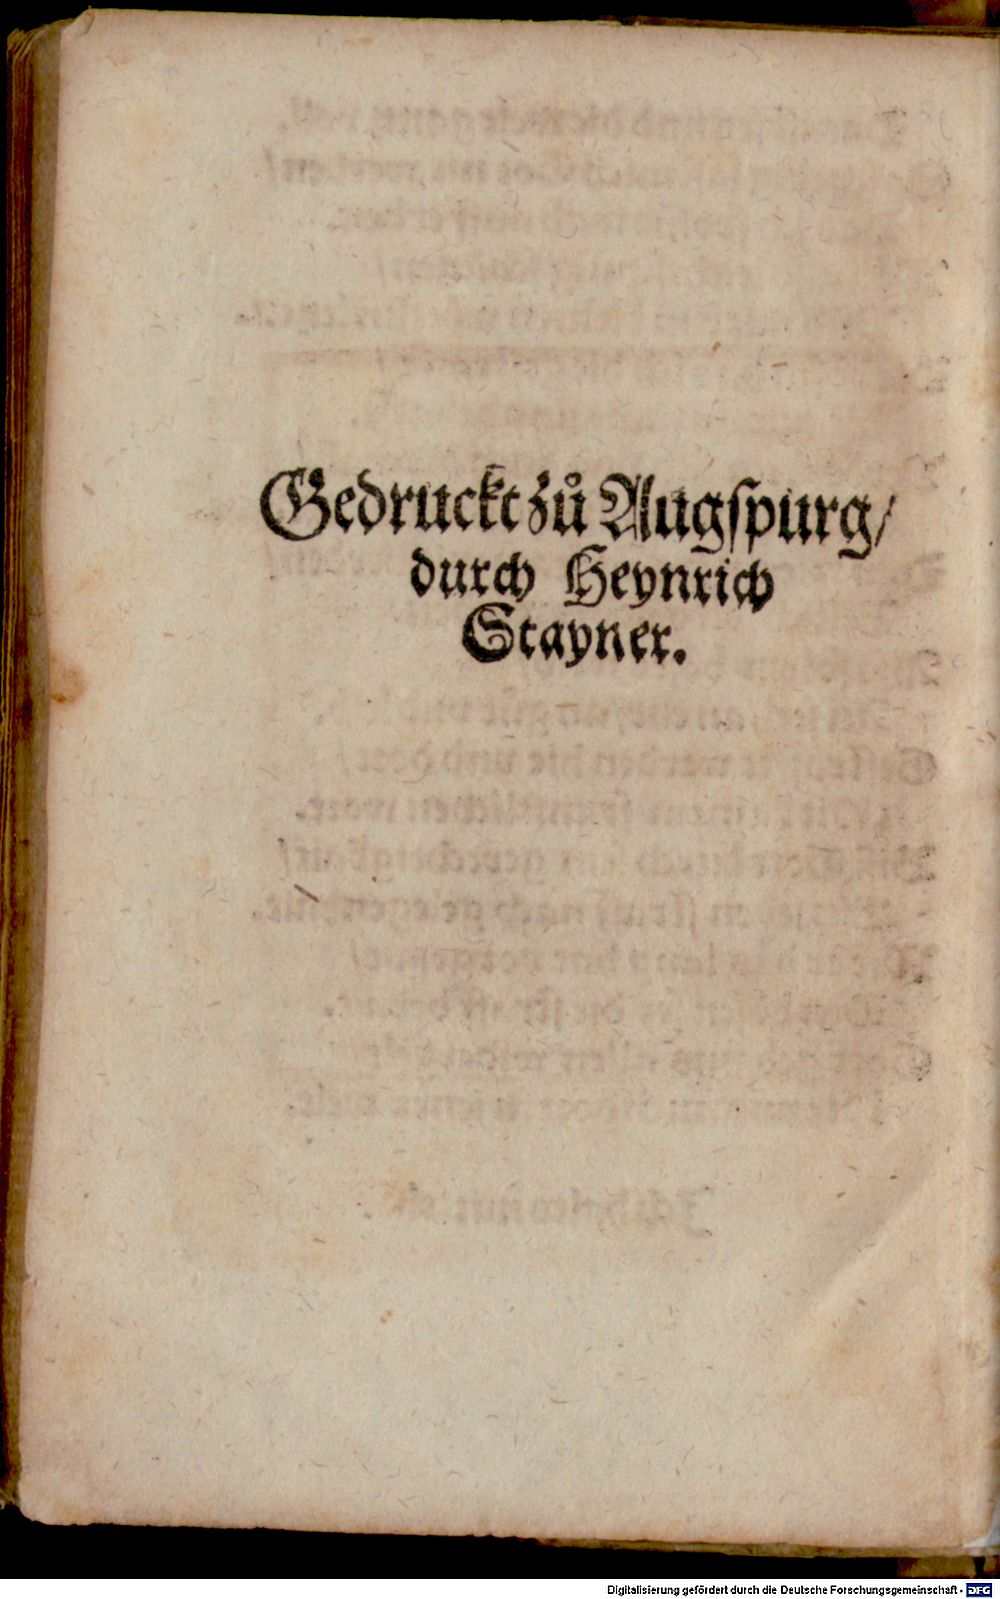 Gedruckt zů Augſpurg/
durch Heynrich
Stayner.
Digitalisierung gefördert durch die Deutsche Forschungsgemeinschaft - DFG